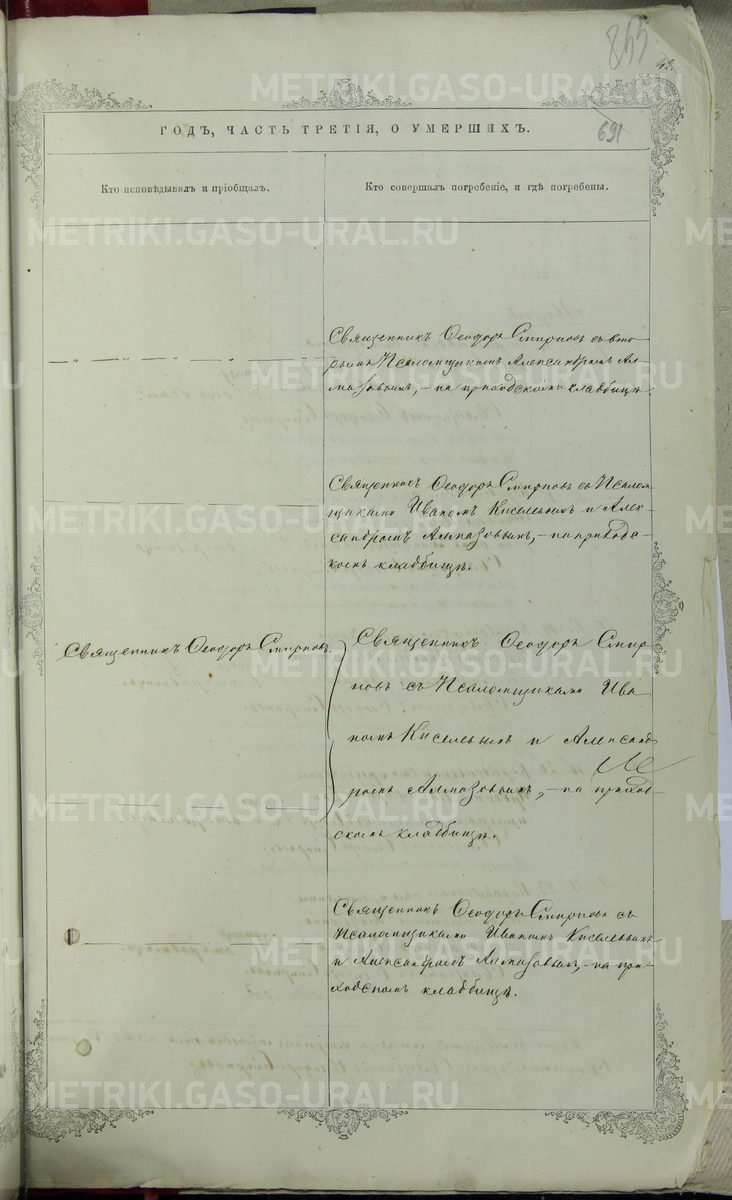 855
42
691
ГОДЪ, ЧАСТЬ ТРЕТІЯ, О УМЕРШИХЪ.
Кто исповѣдывалъ и пріобщалъ.
Кто совершалъ погребеніе, и гдѣ погребены.
Священникъ Ѳеодоръ Смирновъ съ вто-
рымъ Псаломщикомъ Александромъ Ал-
мазовымъ, – на приходскомъ кладбищѣ.
Священникъ Ѳеодоръ Смирновъ съ Псалом
щиками Иваномъ Киселевымъ и Алек-
сандромъ Алмазовымъ, – на приход-
скомъ кладбищѣ.
Священникъ Ѳеодоръ Смирновъ.
Священникъ Ѳеодоръ Смир
новъ съ Псаломщиками Ива
номъ Киселевымъ и Александ
ромъ Алмазовымъ, – на приход-
скомъ кладбищѣ.
Священникъ Ѳеодоръ Смирновъ съ
Псаломщиками Иваномъ Киселевымъ
и Александромъ Алмазовымъ, – на при-
ходскомъ кладбищѣ.
METRIKI.GASO-URAL.RU